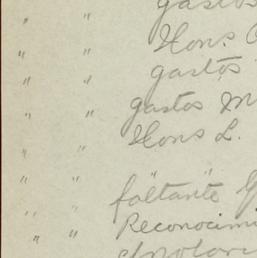 " " gastos
" " Hons.
" " gastos
" " gastos M
" " Hons L.
" "
" " faltante G
" " Reconocimi